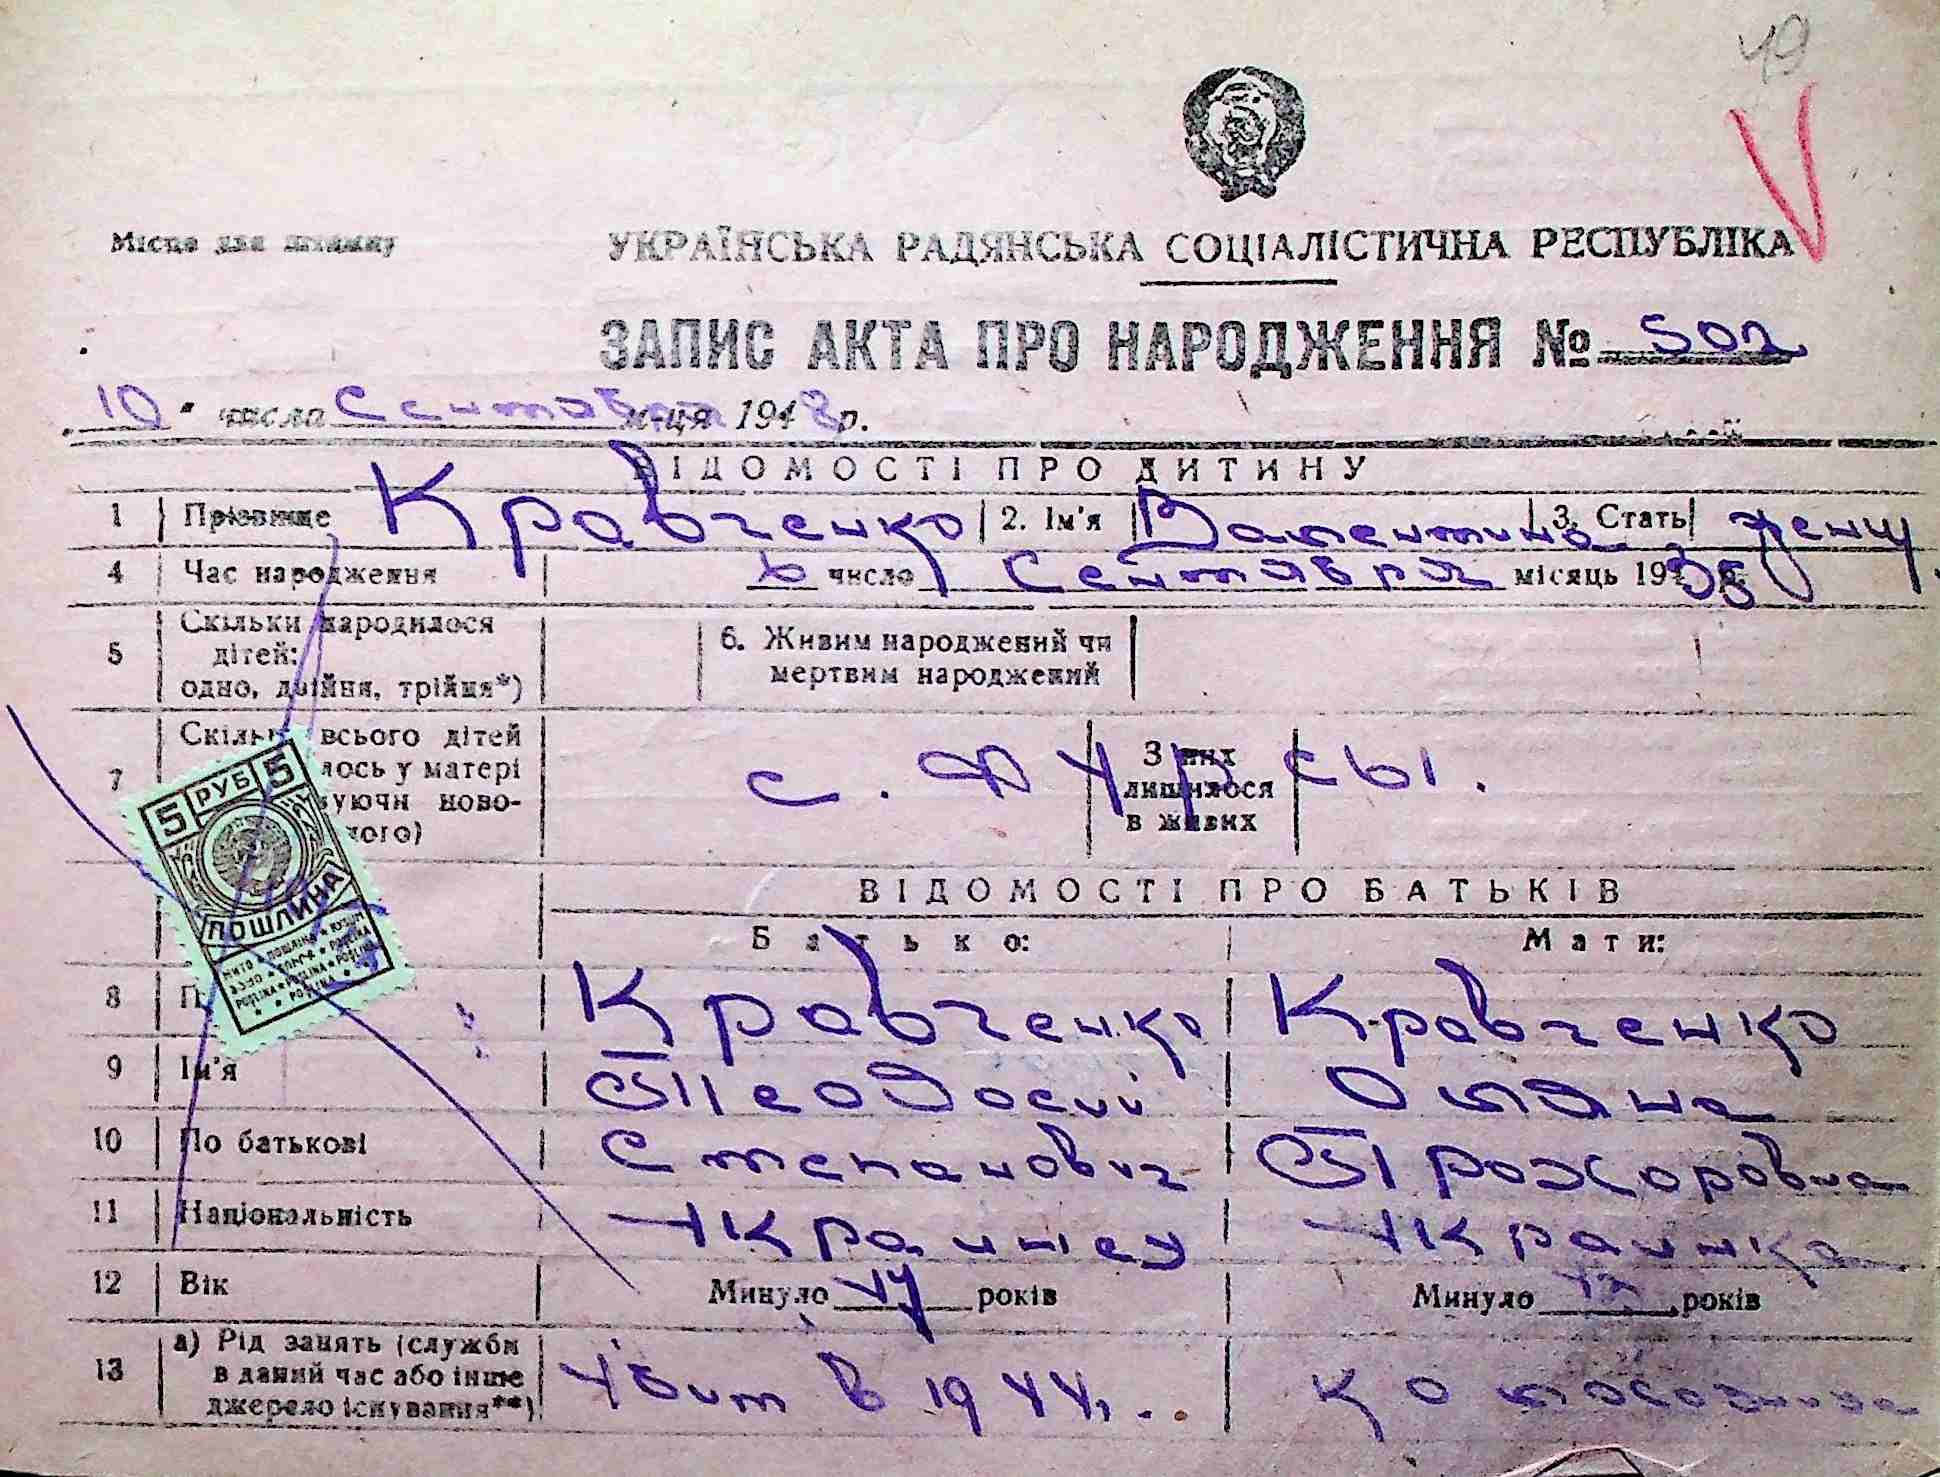 49
Місце для штампу
УКРАЇНСЬКА РАДЯНСЬКА СОЦІАЛІСТИЧНА РЕСПУБЛІКА
ЗАПИС АКТА ПРО НАРОДЖЕННЯ № 502
10 " числа Сентября м-ця 1948 р.
ВІДОМОСТІ ПРО ДИТИНУ
1 Прізвище Кравченко 2. Ім'я Валентина 3. Стать женщ
4 Час народження 6 число Сентября місяць 1935 р.
5 Скільки народилося дітей: одно, двійня, трійня*) 6. Живим народжений чи мертвим народжений
7 Скільки всього дітей лось у матері уючи ново- ого) З них лишилося в живих
с. Фурсы.
ВІДОМОСТІ ПРО БАТЬКІВ
Батько: Мати:
8 П Кравченко Кравченко
9 Ім'я Теодосий Ольяна
10 По батькові Степанович Прохоровна
11 Національність Украинец Украинка
12 Вік Минуло 44 років Минуло 42 років
13 а) Рід занять (служби в даний час або інше джерело існування**) Убит в 1944г. Колхозница
5 РУБ 5
ПОШЛИНА